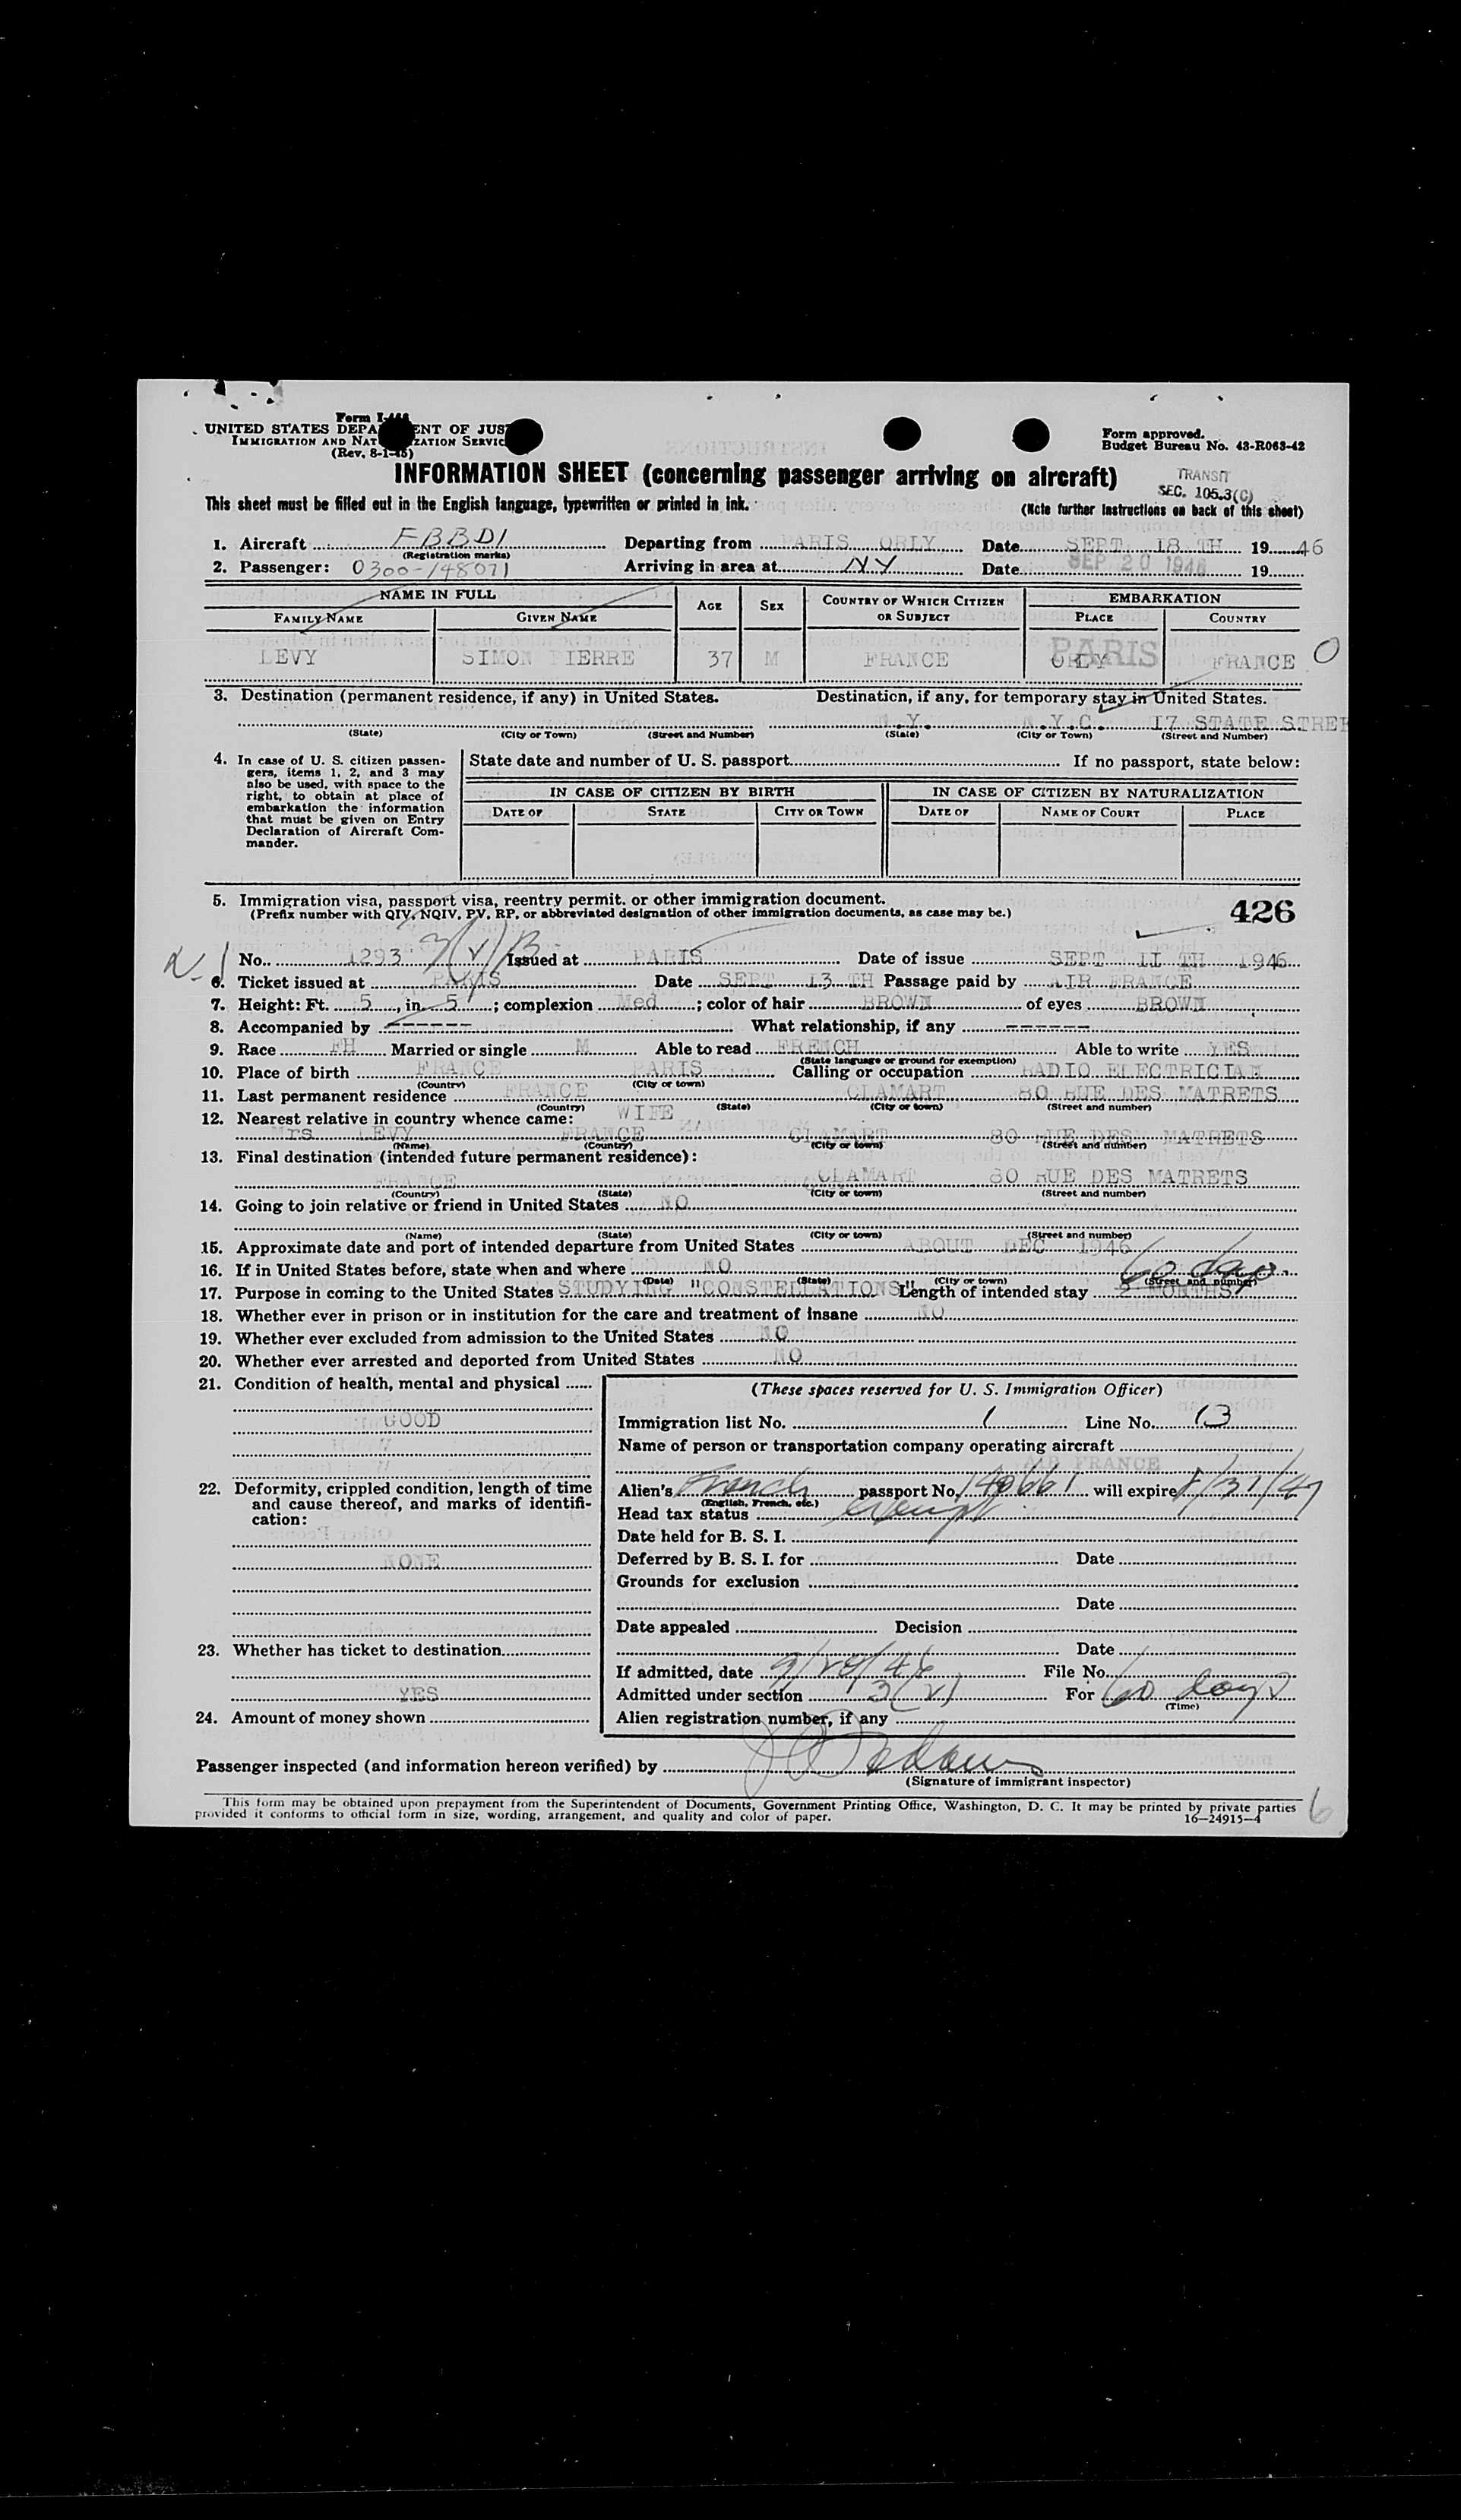 Form I-466
UNITED STATES DEPA ENT OF JUS
IMMIGRATION AND NAT ZATION SERVIC
(Rev. 8-1-45)
Form approved.
Budget Bureau No. 43-R063-42
INFORMATION SHEET (concerning passenger arriving on aircraft)
TRANSIT
SEC. 105.3(C)
This sheet must be filled out in the English language, typewritten or printed in ink.
(Note further instructions on back of this sheet)
1. Aircraft FBBDI Departing from PARIS ORLY Date SEPT 18 TH 1946
(Registration marks)
2. Passenger: 0300-148071 Arriving in area at NY Date SEP 20 1946 19
NAME IN FULL AGE SEX COUNTRY OF WHICH CITIZEN OR SUBJECT EMBARKATION
FAMILY NAME GIVEN NAME PLACE COUNTRY
LEVY SIMON PIERRE 37 M FRANCE ORLY PARIS FRANCE O
3. Destination (permanent residence, if any) in United States. Destination, if any, for temporary stay in United States.
N.Y. N.Y.C. 17 STATE STREE
(State) (City or Town) (Street and Number) (State) (City or Town) (Street and Number)
4. In case of U. S. citizen passen-
gers, items 1, 2, and 3 may
also be used, with space to the
right, to obtain at place of
embarkation the information
that must be given on Entry
Declaration of Aircraft Com-
mander.
State date and number of U. S. passport If no passport, state below:
IN CASE OF CITIZEN BY BIRTH IN CASE OF CITIZEN BY NATURALIZATION
DATE OF STATE CITY OR TOWN DATE OF NAME OF COURT PLACE
5. Immigration visa, passport visa, reentry permit, or other immigration document.
(Prefix number with QIV, NQIV, PV, RP, or abbreviated designation of other immigration documents, as case may be.)
426
No. 1293 Issued at PARIS Date of issue SEPT 11 TH 1946
6. Ticket issued at PARIS Date SEPT 13 TH Passage paid by AIR FRANCE
7. Height: Ft. 5, in. 5; complexion Med; color of hair BROWN of eyes BROWN
8. Accompanied by ------ What relationship, if any ------
9. Race FH Married or single M Able to read FRENCH Able to write YES
(State language or ground for exemption)
10. Place of birth FRANCE PARIS Calling or occupation RADIO ELECTRICIAN
(Country) (City or town)
11. Last permanent residence FRANCE CLAMART 80 RUE DES MATRETS
(Country) (State) (City or town) (Street and number)
12. Nearest relative in country whence came: WIFE
Mrs LEVY FRANCE CLAMART 80 RUE DES MATRETS
(Name) (Country) (City or town) (Street and number)
13. Final destination (intended future permanent residence):
FRANCE CLAMART 80 RUE DES MATRETS
(Country) (State) (City or town) (Street and number)
14. Going to join relative or friend in United States NO
(Name) (State) (City or town) (Street and number)
15. Approximate date and port of intended departure from United States ABOUT DEC 1946
16. If in United States before, state when and where NO
(Date) (State) (City or town) (Street and number)
60 days
17. Purpose in coming to the United States STUDYING "CONSTELLATIONS" Length of intended stay MONTHS
18. Whether ever in prison or in institution for the care and treatment of insane NO
19. Whether ever excluded from admission to the United States NO
20. Whether ever arrested and deported from United States NO
21. Condition of health, mental and physical
GOOD
22. Deformity, crippled condition, length of time
and cause thereof, and marks of identifi-
cation:
NONE
23. Whether has ticket to destination
YES
24. Amount of money shown
(These spaces reserved for U. S. Immigration Officer)
Immigration list No. 1 Line No. 13
Name of person or transportation company operating aircraft
AIR FRANCE
Alien's French passport No. 140661 will expire 8/31/47
(English, French, etc.)
Head tax status exempt
Date held for B. S. I.
Deferred by B. S. I. for Date
Grounds for exclusion
Date
Date appealed Decision
Date
If admitted, date 9/20/46 File No.
Admitted under section 3(2) For 60 days
(Time)
Alien registration number, if any
Passenger inspected (and information hereon verified) by
(Signature of immigrant inspector)
This form may be obtained upon prepayment from the Superintendent of Documents, Government Printing Office, Washington, D. C. It may be printed by private parties
provided it conforms to official form in size, wording, arrangement, and quality and color of paper.
16—24915-4
6